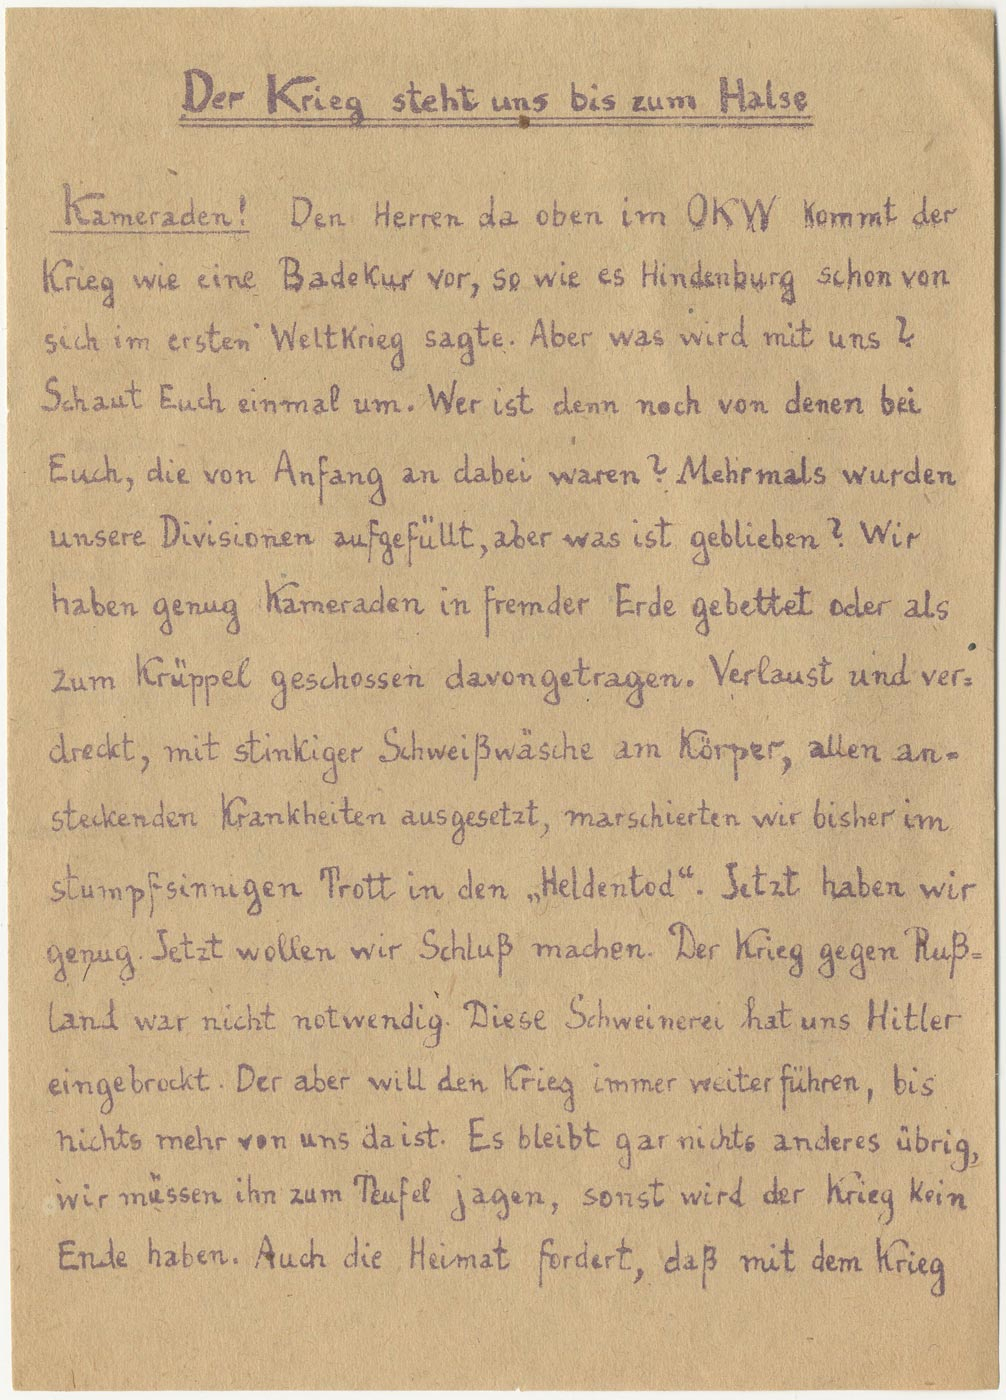 Der Krieg steht uns bis zum Halse
Kameraden! Den Herren da oben im OKW kommt der
Krieg wie eine Badekur vor, so wie es Hindenburg schon von
sich im ersten Weltkrieg sagte. Aber was wird mit uns?
Schaut Euch einmal um. Wer ist denn noch von denen bei
Euch, die von Anfang an dabei waren? Mehrmals wurden
unsere Divisionen aufgefüllt, aber was ist geblieben? Wir
haben genug Kameraden in fremder Erde gebettet oder als
zum Krüppel geschossen davongetragen. Verlaust und ver=
dreckt, mit stinkiger Schweißwäsche am Körper, allen an=
steckenden Krankheiten ausgesetzt, marschierten wir bisher im
stumpfsinnigen Trott in den „Heldentod“. Jetzt haben wir
genug. Jetzt wollen wir Schluß machen. Der Krieg gegen Ruß=
land war nicht notwendig. Diese Schweinerei hat uns Hitler
eingebrockt. Der aber will den Krieg immer weiterführen, bis
nichts mehr von uns da ist. Es bleibt gar nichts anderes übrig,
wir müssen ihn zum Teufel jagen, sonst wird der Krieg kein
Ende haben. Auch die Heimat fordert, daß mit dem Krieg